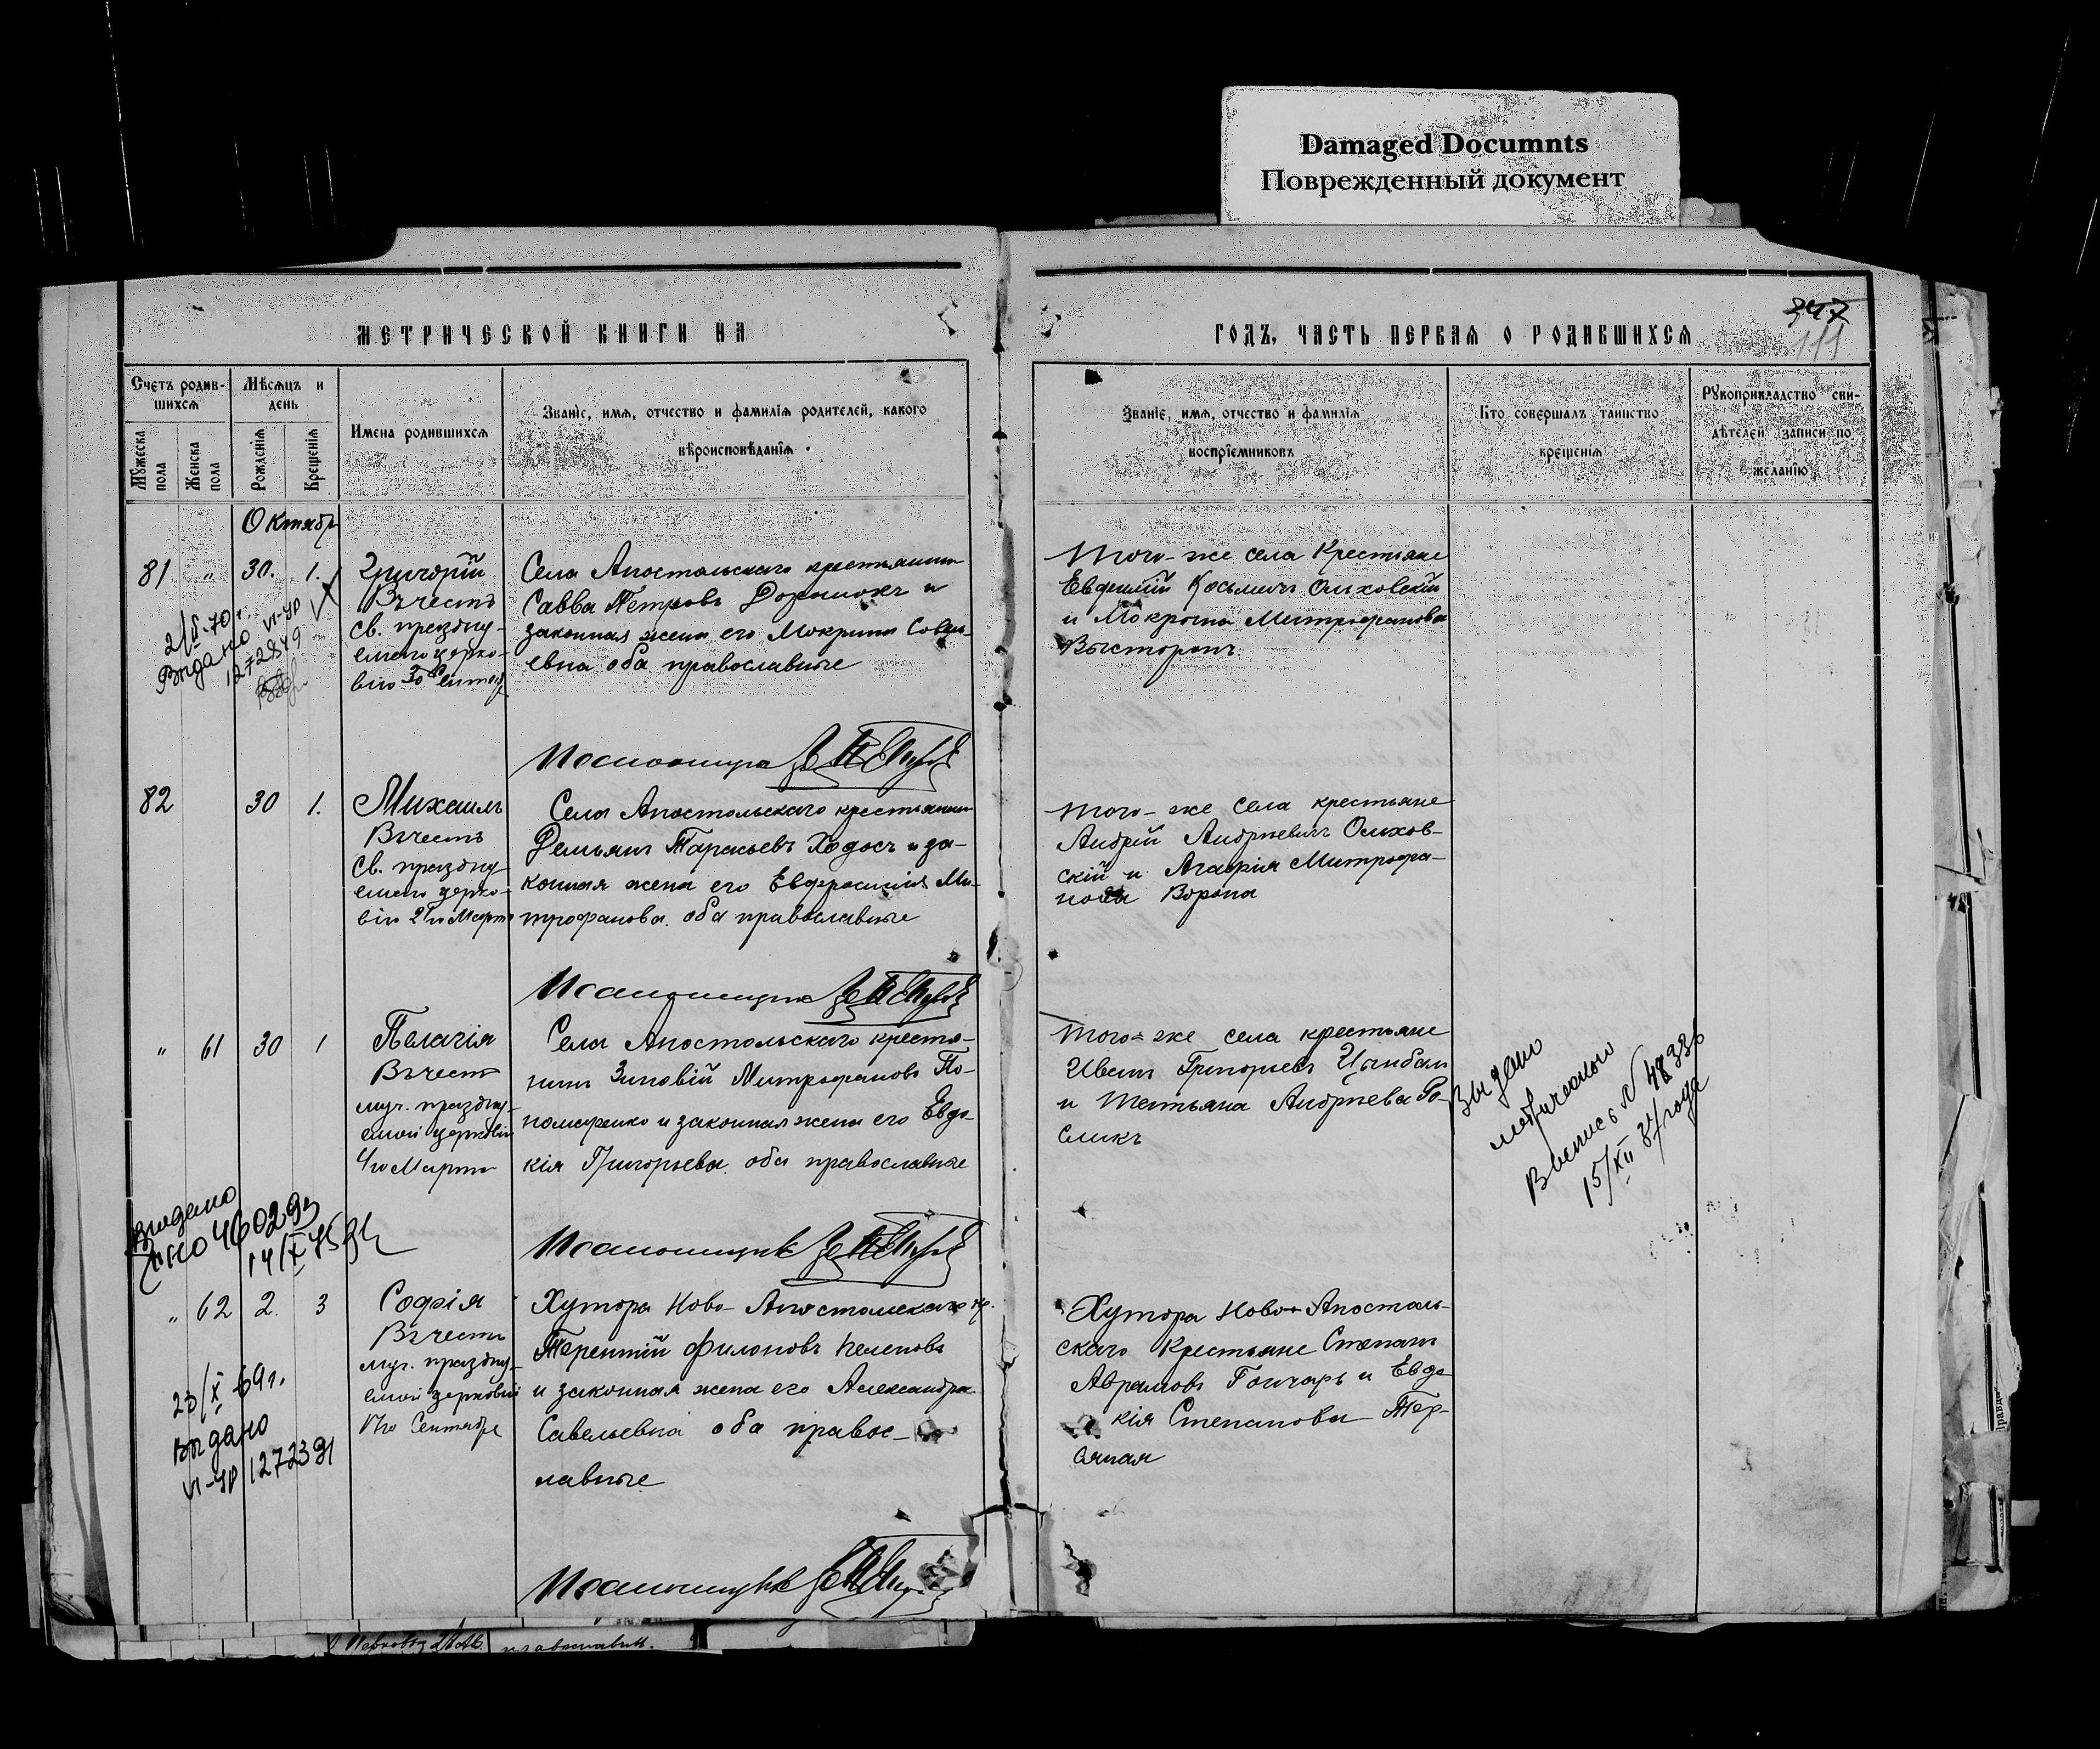 Damaged Documnts
Поврежденный документ
МЕТРИЧЕСКОЙ КНИГИ НА
ГОДЪ, ЧАСТЬ ПЕРВАЯ О РОДИВШИХСЯ
347
111
Счетъ родив-
шихся
Мѣсяцъ и
день
Мужеска
пола
Женска
пола
Рожденія
Крещенія
Имена родившихся
Званіе, имя, отчество и фамилія родителей, какого
вѣроисповѣданія
Званіе, имя, отчество и фамилія
воспріемниковъ
Кто совершалъ таинство
крещенія
Рукоприкладство сви-
дѣтелей записи по
желанію
Октябр
81 " 30. 1.
Григорій
Въ честь
св. праздну-
емаго церко-
вію 30 Сентяб
Села Апостольскаго крестьянинъ
Савва Петровъ и
законная жена его Мокрина Савель-
евна оба православные
Того-же села Крестьяне
Евдокимъ Косьмичъ Ольховскій
и Мокрина Митрофанова
2/X-70г.
Выдано VI-ЯР
1272849
82 30 1.
Михаилъ
Въ честь
Св. праздну-
емаго церко-
вію Марта
Села Апостольскаго крестьянинъ
Демьянъ Тарасьевъ Ходосъ и за-
конная жена его Евфросинія Ми-
трофанова. оба православные
Того-же села крестьяне
Андрій Андріевичъ Ольхов-
скій и Агафія Митрофа-
нова Ворона
" 61 30 1
Пелагія
Въ честь
муч. праздну-
емой церковію
4го Марта
Села Апостольскаго крестья-
нинъ Зиновій Митрофановъ По-
номаренко и законная жена его Евдо-
кія Григорьева. оба православные
Того-же села крестьяне
Иванъ Григорьевъ Цымбалъ
и Татьяна Андріева
Выдано
метрическую
Выпись № 48336
15/XII года
Выдано
460293
14/X 45
" 62 2. 3
Софія
Въ честь
муч. праздну-
емой церковію
17го Сентября
Хутора Ново-Апостольскаго кр.
Терентій Филоновъ
и законная жена его Александра
Савельевна оба правос-
лавные
Хутора Ново-Апостоль-
скаго Крестьяне Степанъ
Аврамовъ Гончаръ и Евдо-
кія Степанова
23/X-69г.
Выдано
VI-ЯР 1272391